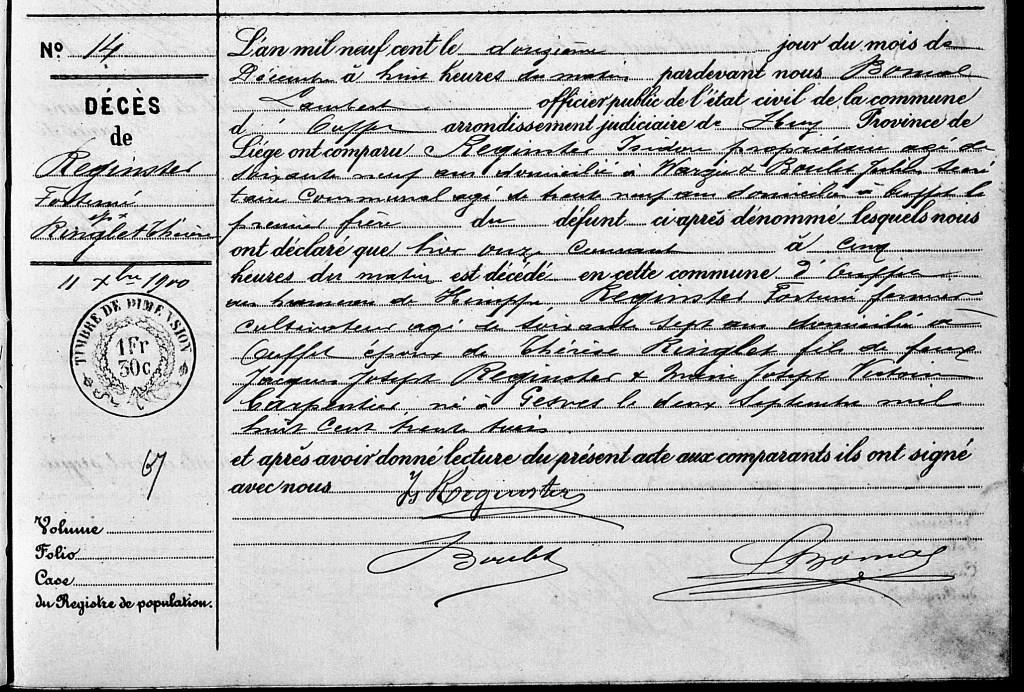 Nº 14
DÉCÈS
de
Reginster
Fortuné
ép x
Ringlet Thérèse
11 Xbre 1900
TIMBRE DE DIMENSION
1 Fr
30 c.
67
Volume
Folio
Case
du Registre de population.
L'an mil neuf cent le douzième jour du mois de
Décembre à huit heures du matin pardevant nous Bomal
Lambert officier public de l'état civil de la commune
d' Ouffet arrondissement judiciaire de Huy Province de
Liége ont comparu Reginster Isidore propriétaire agé de
soixante neuf ans domicilié à Warzée & Boulet Julien secré
taire communal agé de trente neuf ans domicilié à Ouffet le
premier frère du défunt ci-après dénommé lesquels nous
ont déclaré que hier onze courant à cinq
heures du matin est décédé en cette commune d'Ouffet
au hameau de Reginster Fortuné fermier
cultivateur agé de soixante sept ans domicilié à
Ouffet époux de Thérèse Ringlet fils de feux
Jacques Joseph Reginster & Marie Joseph Victoire
Carpentier né à Gesves le deux Septembre mil
huit cent trente trois
et après avoir donné lecture du présent acte aux comparants ils ont signé
avec nous Is Reginster
Boulet
LBomal